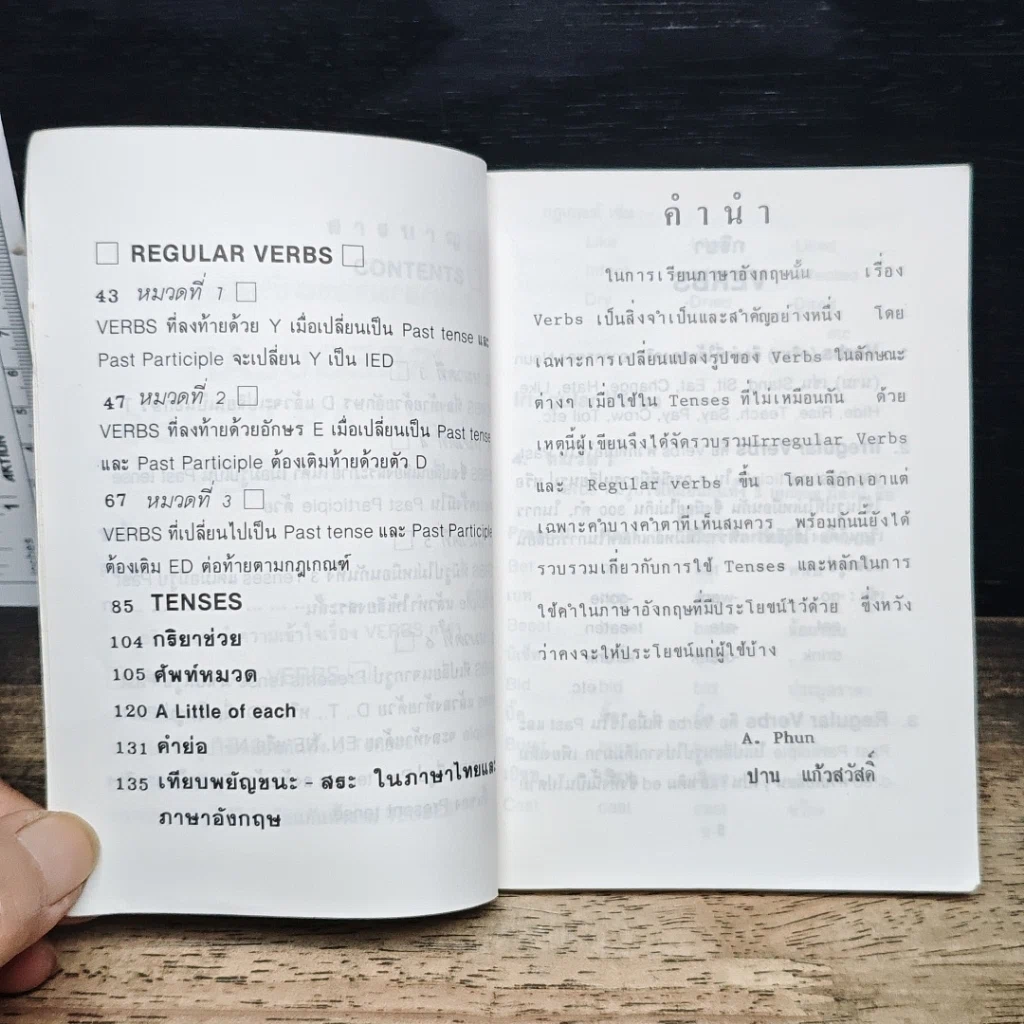 REGULAR VERBS
43 หมวดที่ 1
VERBS ที่ลงท้ายด้วย Y เมื่อเปลี่ยนเป็น Past tense และ
Past Participle จะเปลี่ยน Y เป็น IED
47 หมวดที่ 2
VERBS ที่ลงท้ายด้วยอักษร E เมื่อเปลี่ยนเป็น Past tense
และ Past Participle ต้องเติมท้ายด้วยตัว D
67 หมวดที่ 3
VERBS ที่เปลี่ยนไปเป็น Past tense และ Past Participle
ต้องเติม ED ต่อท้ายตามกฎเกณฑ์
85 TENSES
104 กริยาช่วย
105 ศัพท์หมวด
120 A Little of each
131 คำย่อ
135 เทียบพยัญชนะ - สระ ในภาษาไทยและ
ภาษาอังกฤษ
คำนำ
ในการเรียนภาษาอังกฤษนั้น เรื่อง
Verbs เป็นสิ่งจำเป็นและสำคัญอย่างหนึ่ง โดย
เฉพาะการเปลี่ยนแปลงรูปของ Verbs ในลักษณะ
ต่างๆ เมื่อใช้ใน Tenses ที่ไม่เหมือนกัน ด้วย
เหตุนี้ผู้เขียนจึงได้จัดรวบรวมIrregular Verbs
และ Regular verbs ขึ้น โดยเลือกเอาแต่
เฉพาะคำบางคำตาที่เห็นสมควร พร้อมกันนี้ยังได้
รวบรวมเกี่ยวกับการใช้ Tenses และหลักในการ
ใช้คำในภาษาอังกฤษที่มีประโยชน์ไว้ด้วย ซึ่งหวัง
ว่าคงจะให้ประโยชน์แก่ผู้ใช้บ้าง
A. Phun
ปาน แก้วสวัสดิ์